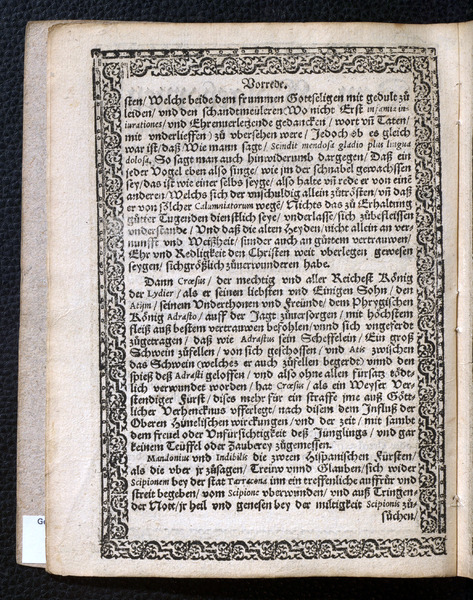 Vorrede.
sten/ Welche beide dem frummen Gottseligen mit gedult zů
leiden/ vnd den schandtmeüleren Wo nicht Erst infamie in
iurationes/ vnd Ehrenuerletzende gedancken/ wort vñ Taten/
mit vnderlieffen/ zů vbersehen were/ Jedoch ob es gleich
war ist/ daß Wie mann sagt/ Scindit mendosa gladio plus lingua
dolosa, So sagt man auch hinwiderumb dargegen/ Daß ein
jeder Vogel eben also singe/ wie jm der schnabel gewachssen
sey/ das ist wie einer selbs seyge/ also halte vñ rede er von einẽ
anderen/ Welchs sich der vnschuldig allein zůtrösten/ vñ daß
er von sölcher Calumniatorum wegẽ/ Nichts das zů Erhaltung
gůtter Tugenden dienstlich seye/ vnderlasse/ sich zůbefleissen
vnderstande/ Vnd daß die alten Heyden/ nicht allein an ver-
nunfft vnd Weißheit/ sunder auch an gůttem vertrauwen/
Ehr vnd Redligkeit den Christen weit vberlegen gewesen
seygen/ sich größlich zůuerwunderen habe.
Dann Crœsus, der mechtig vnd aller Reichest König
der Lydier/ als er seinen liebsten vnd Einigen Sohn/ den
Atijm/ seinem Vnderthonen vnd Freünde/ dem Phrygischen
König Adrasto/ auff der Jagt zůuersorgen/ mit höchstem
fleiß auß bestem vertrauwen befohlen/ vnnd sich vngeferdt
zůgetragen/ daß wie Adrastus sein Scheffelein/ Ein groß
Schwein zůfellen/ von sich geschossen/ vnd Atis zwischen
das Schwein (welches er auch zůfellen begerdt) vnnd den
spieß deß Adrasti geloffen/ vnd also ohne allen fürsatz tödt-
lich verwundet worden/ hat Crœsus/ als ein Weyser Ver-
stendiger Fürst/ dises mehr für ein straffe jme auß Gött-
licher Verhencknus vfferlegt/ nach disem dem Influß der
Oberen Him̃elischen wirckungen/ vnd der zeit/ mit sambt
dem freuel oder Vnfürsichtigkeit deß Jünglings/ vnd gar
keinem Teüffel oder Zauberey zůgemessen.
Mandonius vnd Indibilis die zween Hispanischen Fürsten/
als die vber jr zůsagen/ Treüw vnnd Glauben/ sich wider
Scipionem bey der stat Tarracona inn ein treffenliche auffrür vnd
streit begeben/ vom Scipione vberwunden/ vnd auß Tringen-
der Nott/ jr heil vnd genesen bey der miltigkeit Scipionis zů-
sůchen/